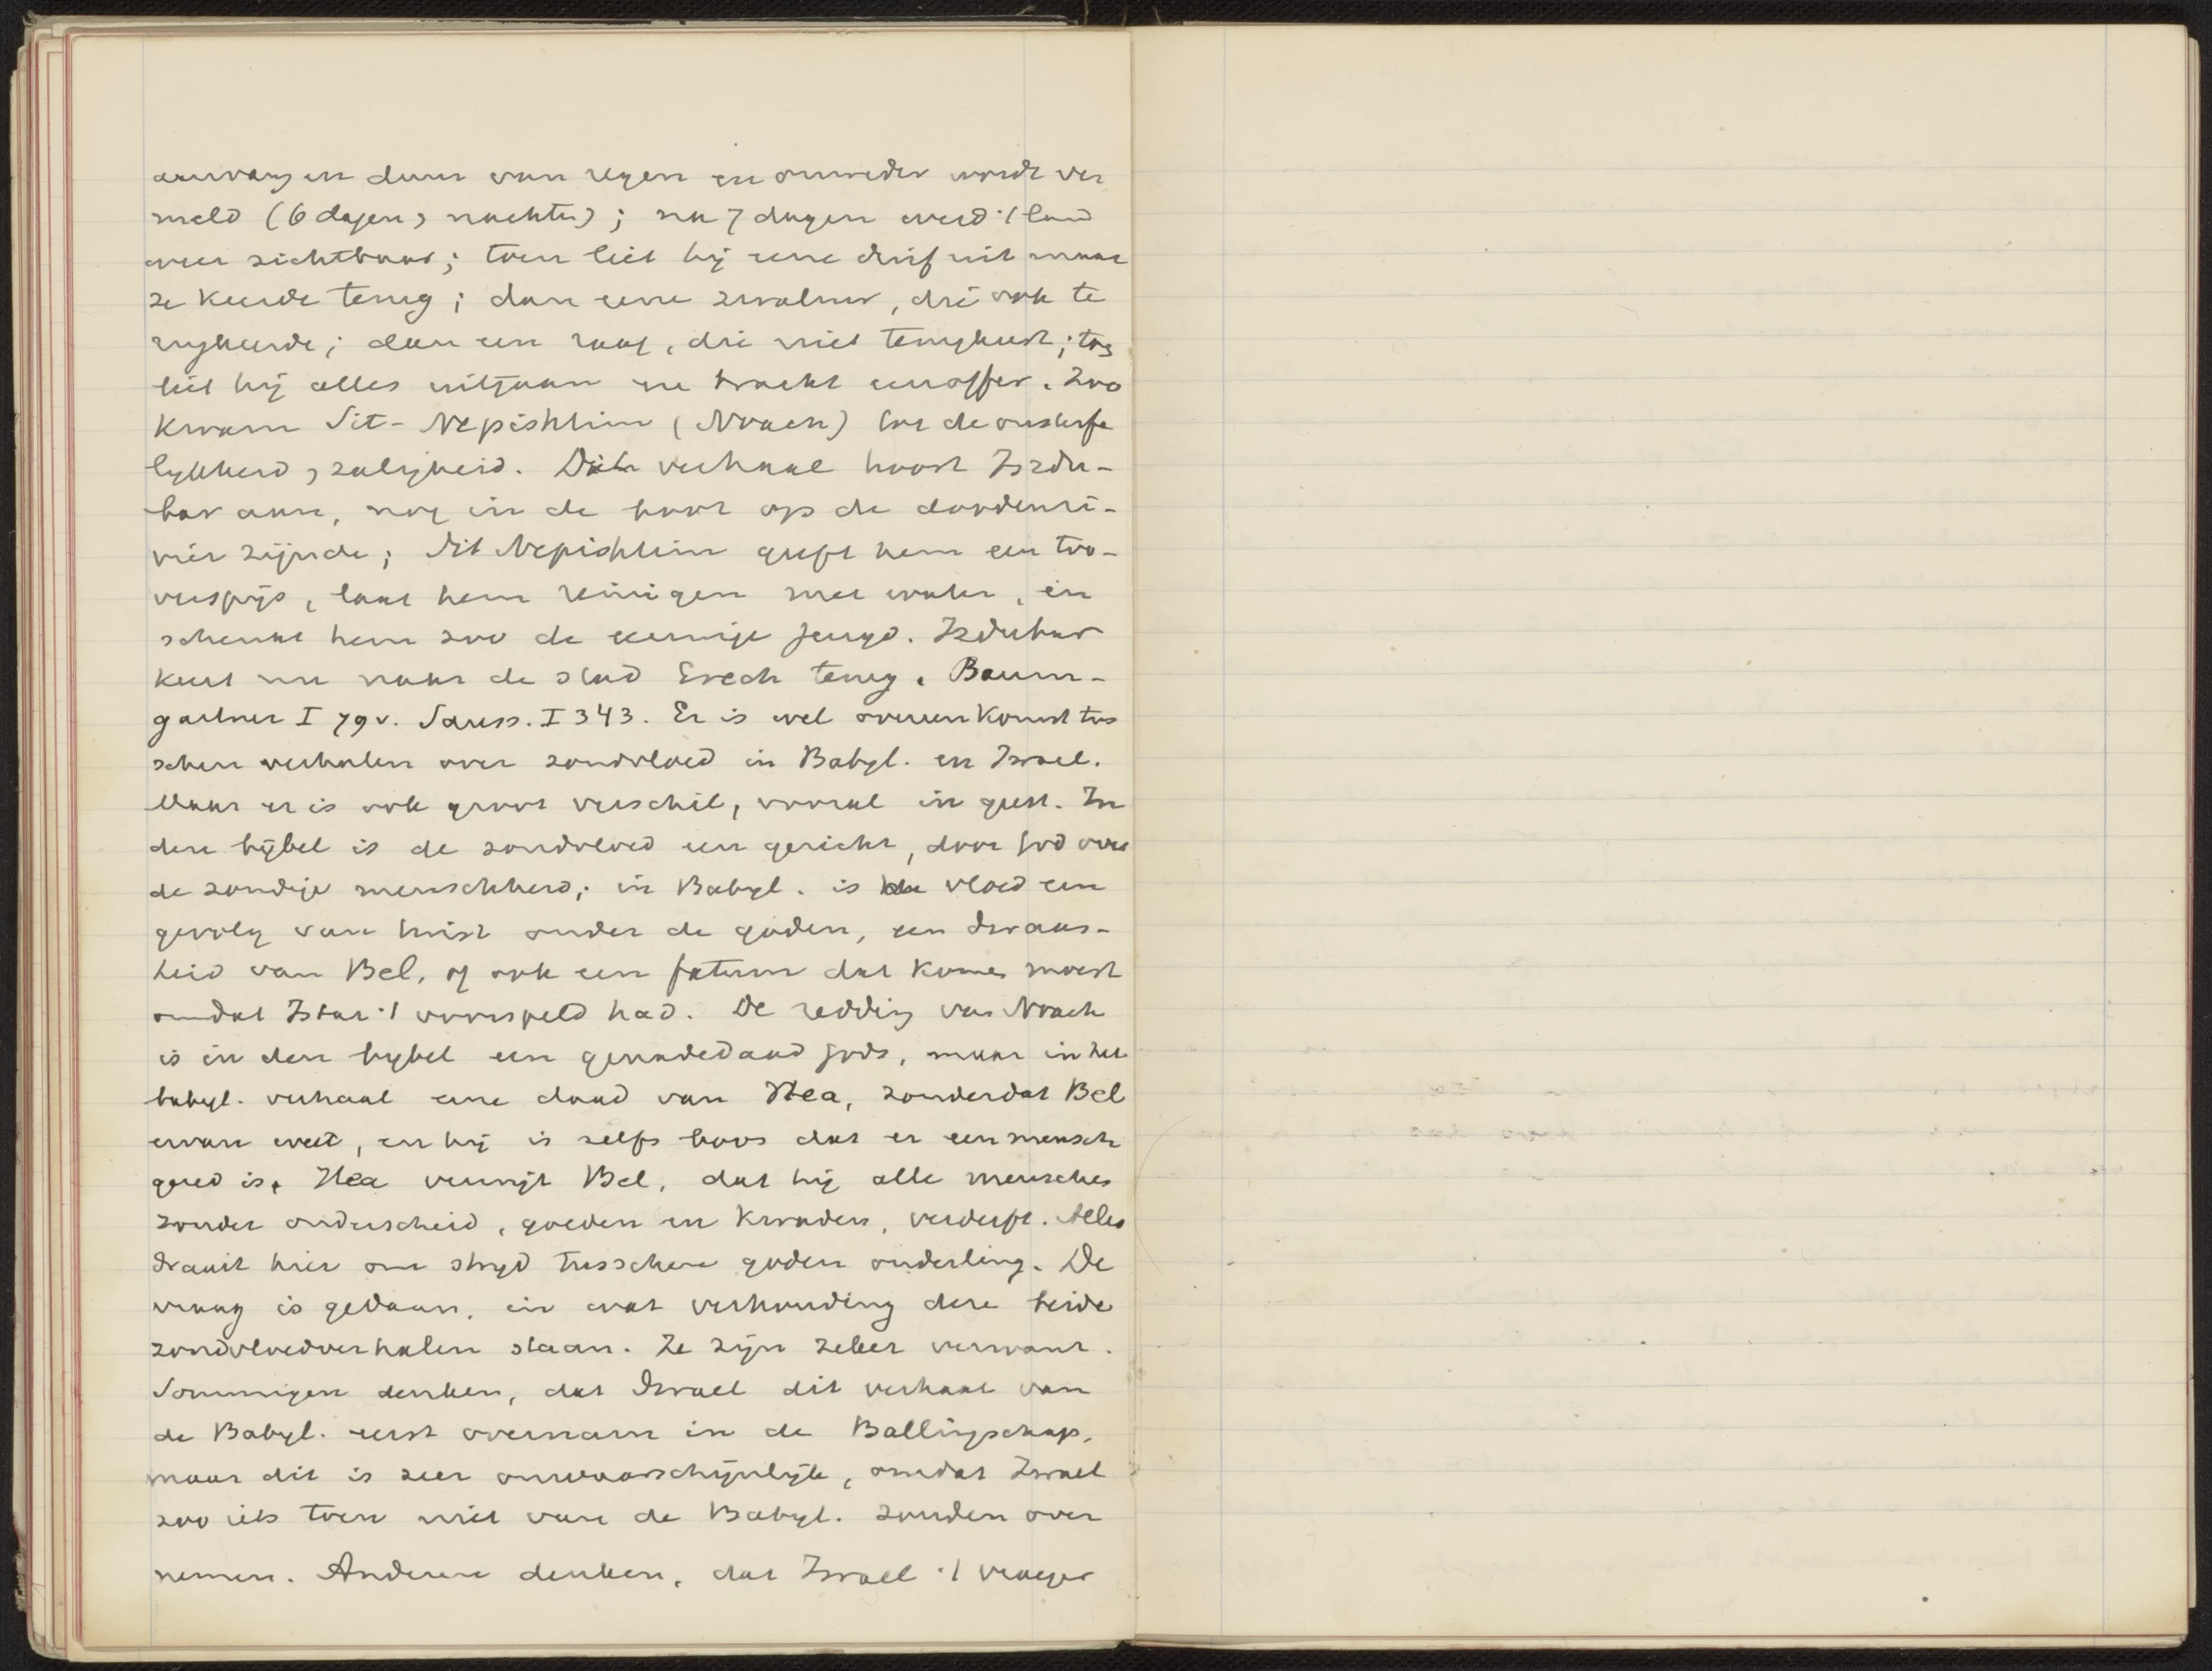 aanvang en duur van regen en onweder wordt ver
meld (6 dagen, nachten); na 7 dagen werd 't land
weer zichtbaar; toen liet hij eene duif uit maar
ze keerde terug; dan eene zwaluw, die ook te
rugkeerde; dan een raaf, die niet terugkeert; toen
liet hij alles uitgaan en bracht een offer. Zoo
kwam Sit-Nepishtim (Noach) tot de onsterfe
lijkheid, zaligheid. Dit verhaal hoort Iszdu-
bar aan, nog in de boot op de doodenri-
vier zijnde; Sit Nepishtim geeft hem een too-
verspijs, laat hem reinigen met water, en
schenkt hem zoo de eeuwige jeugd. Izdubar
keert nu naar de stad Erech terug. Baum-
gartner I 79v. Sauss. I 343. Er is wel overeenkomst tus
schen verhalen over zondvloed in Babyl. en Israel.
Maar er is ook groot verschil, vooral in geest. In
den bijbel is de zondvloed een gericht, door God over
de zondige menschheid; in Babyl. is de vloed een
gevolg van twist onder de goden, een dwaas-
heid van Bel, of ook een fatum dat komen moest
omdat Istar 't voorspeld had. De redding van Noach
is in den bijbel een genadedaad Gods, maar in het
babyl. verhaal eene daad van Hea, zonderdat Bel
ervan weet, en hij is zelfs boos dat er een mensch
gered is. Hea verwijt Bel, dat hij alle menschen
zonder onderscheid, goeden en kwaden, verderft. Alles
draait hier om strijd tusschen goden onderling. De
vraag is gedaan, in wat verhouding deze beide
zondvloedverhalen staan. Ze zijn zeker verwant.
Sommigen denken, dat Israel dit verhaal van
de Babyl. eerst overnam in de Ballingschap,
maar dit is zeer onwaarschijnlijk, omdat Israel
zoo iets toen niet van de Babyl. zouden over
nemen. Anderen denken, dat Israel 't vroeger